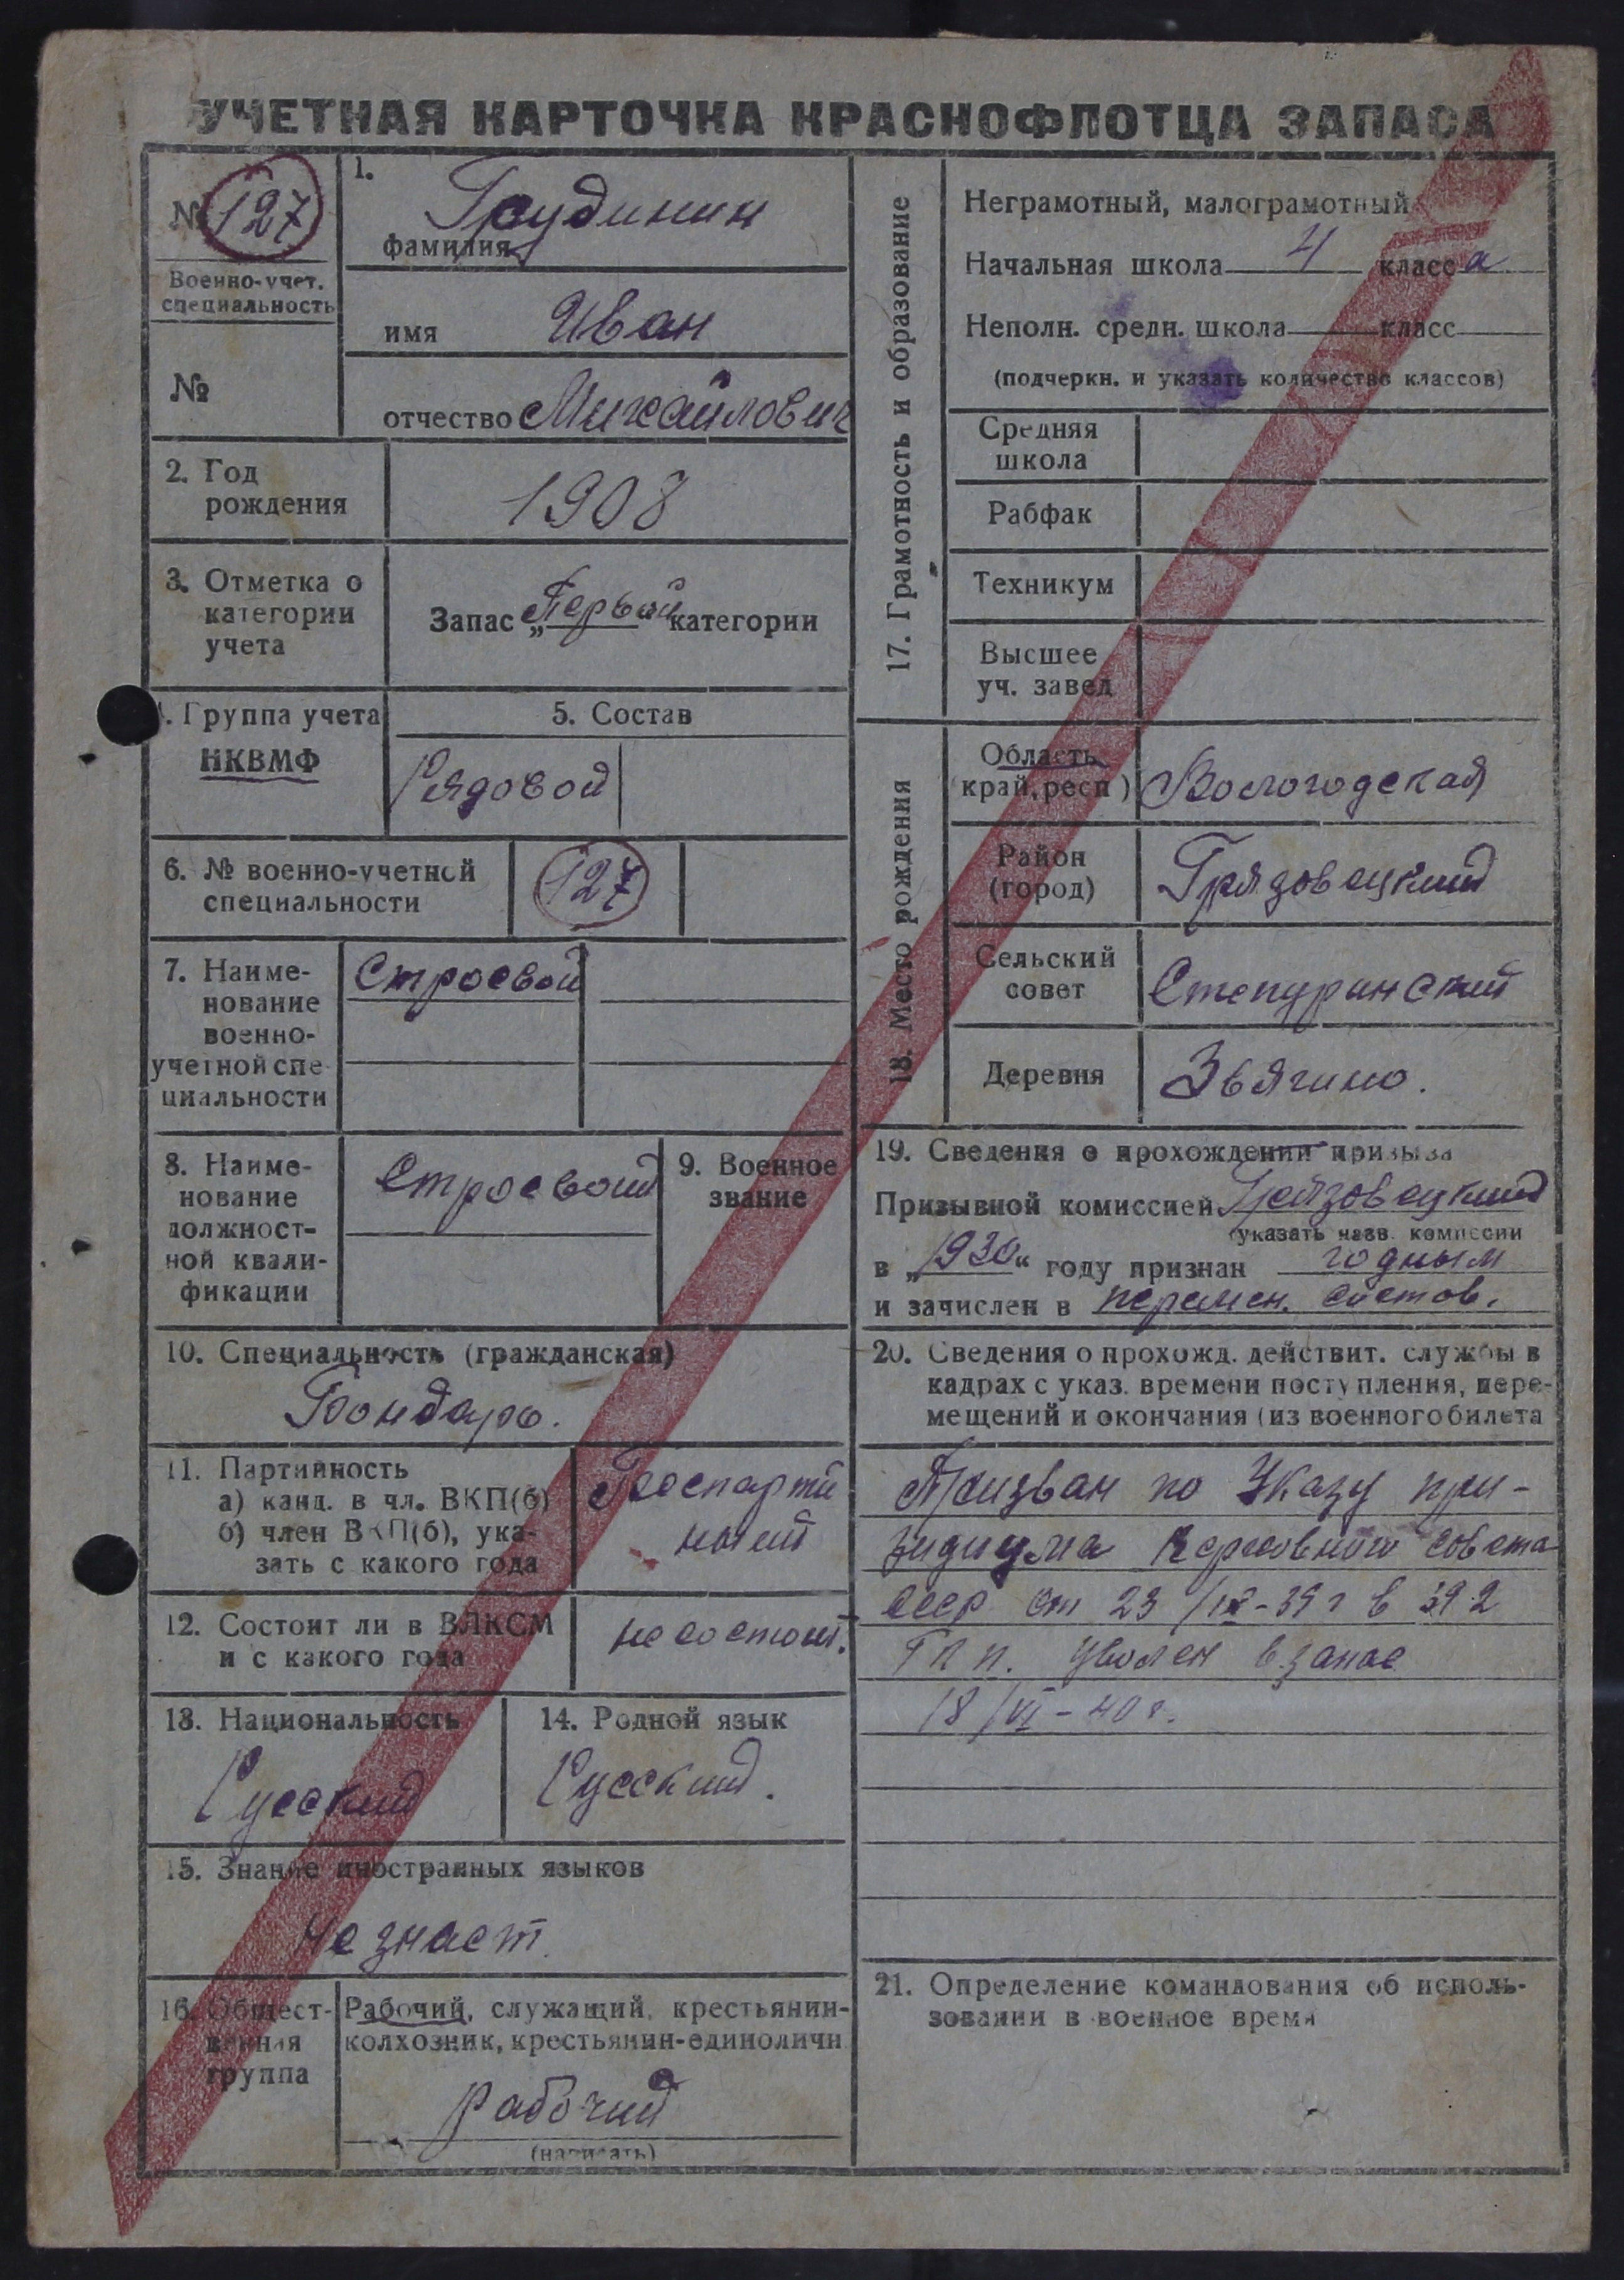 УЧЕТНАЯ КАРТОЧКА КРАСНОФЛОТЦА ЗАПАСА
№ 127
Военно-учет.
специальность
№
1.
фамилия Грудинин
имя Иван
отчество Михайлович
2. Год
рождения
1908
3. Отметка о
категории
учета
Запас „Первой“ категории
4. Группа учета
НКВМФ
5. Состав
Рядовой
6. № военно-учетной
специальности
127
7. Наиме-
нование
военно-
учетной спе
циальности
Строевой
8. Наиме-
нование
должност-
ной квали-
фикации
Строевой
9. Военное
звание
10. Специальность (гражданская)
Бондарь.
11. Партийность
а) канд. в чл. ВКП(б)
б) член ВКП(б), ука-
зать с какого года
Беспартий
ный
12. Состоит ли в ВЛКСМ
и с какого года
не состоит.
13. Национальность
Русский
14. Родной язык
Русский.
15. Знание иностранных языков
Не знает.
16. Общест-
венная
группа
Рабочий, служащий, крестьянин-
колхозник, крестьянин-единоличн
рабочий
(написать)
17. Грамотность и образование
Неграмотный, малограмотный
Начальная школа 4 класс а
Неполн. средн. школа класс
(подчеркн. и указать количество классов)
Средняя
школа
Рабфак
Техникум
Высшее
уч. завед
18. Место рождения
Область
край, респ)
Вологодская
Район
(город)
Грязовецкий
Сельский
совет
Степуринский
Деревня
Звягино.
19. Сведения о прохождении призыва
Призывной комиссией Грязовецкий
указать назв. комиссии
в „1930“ году признан годным
и зачислен в перемен. состав.
20. Сведения о прохожд. действит. службы в
кадрах с указ. времени поступления, пере-
мещений и окончания (из военного билета
Призван по Указу при-
зидиума Верховного совета
СССР от 23/IX-39 г в 392
уволен в запас
18/VI-40 г.
21. Определение командования об исполь-
зовании в военное время